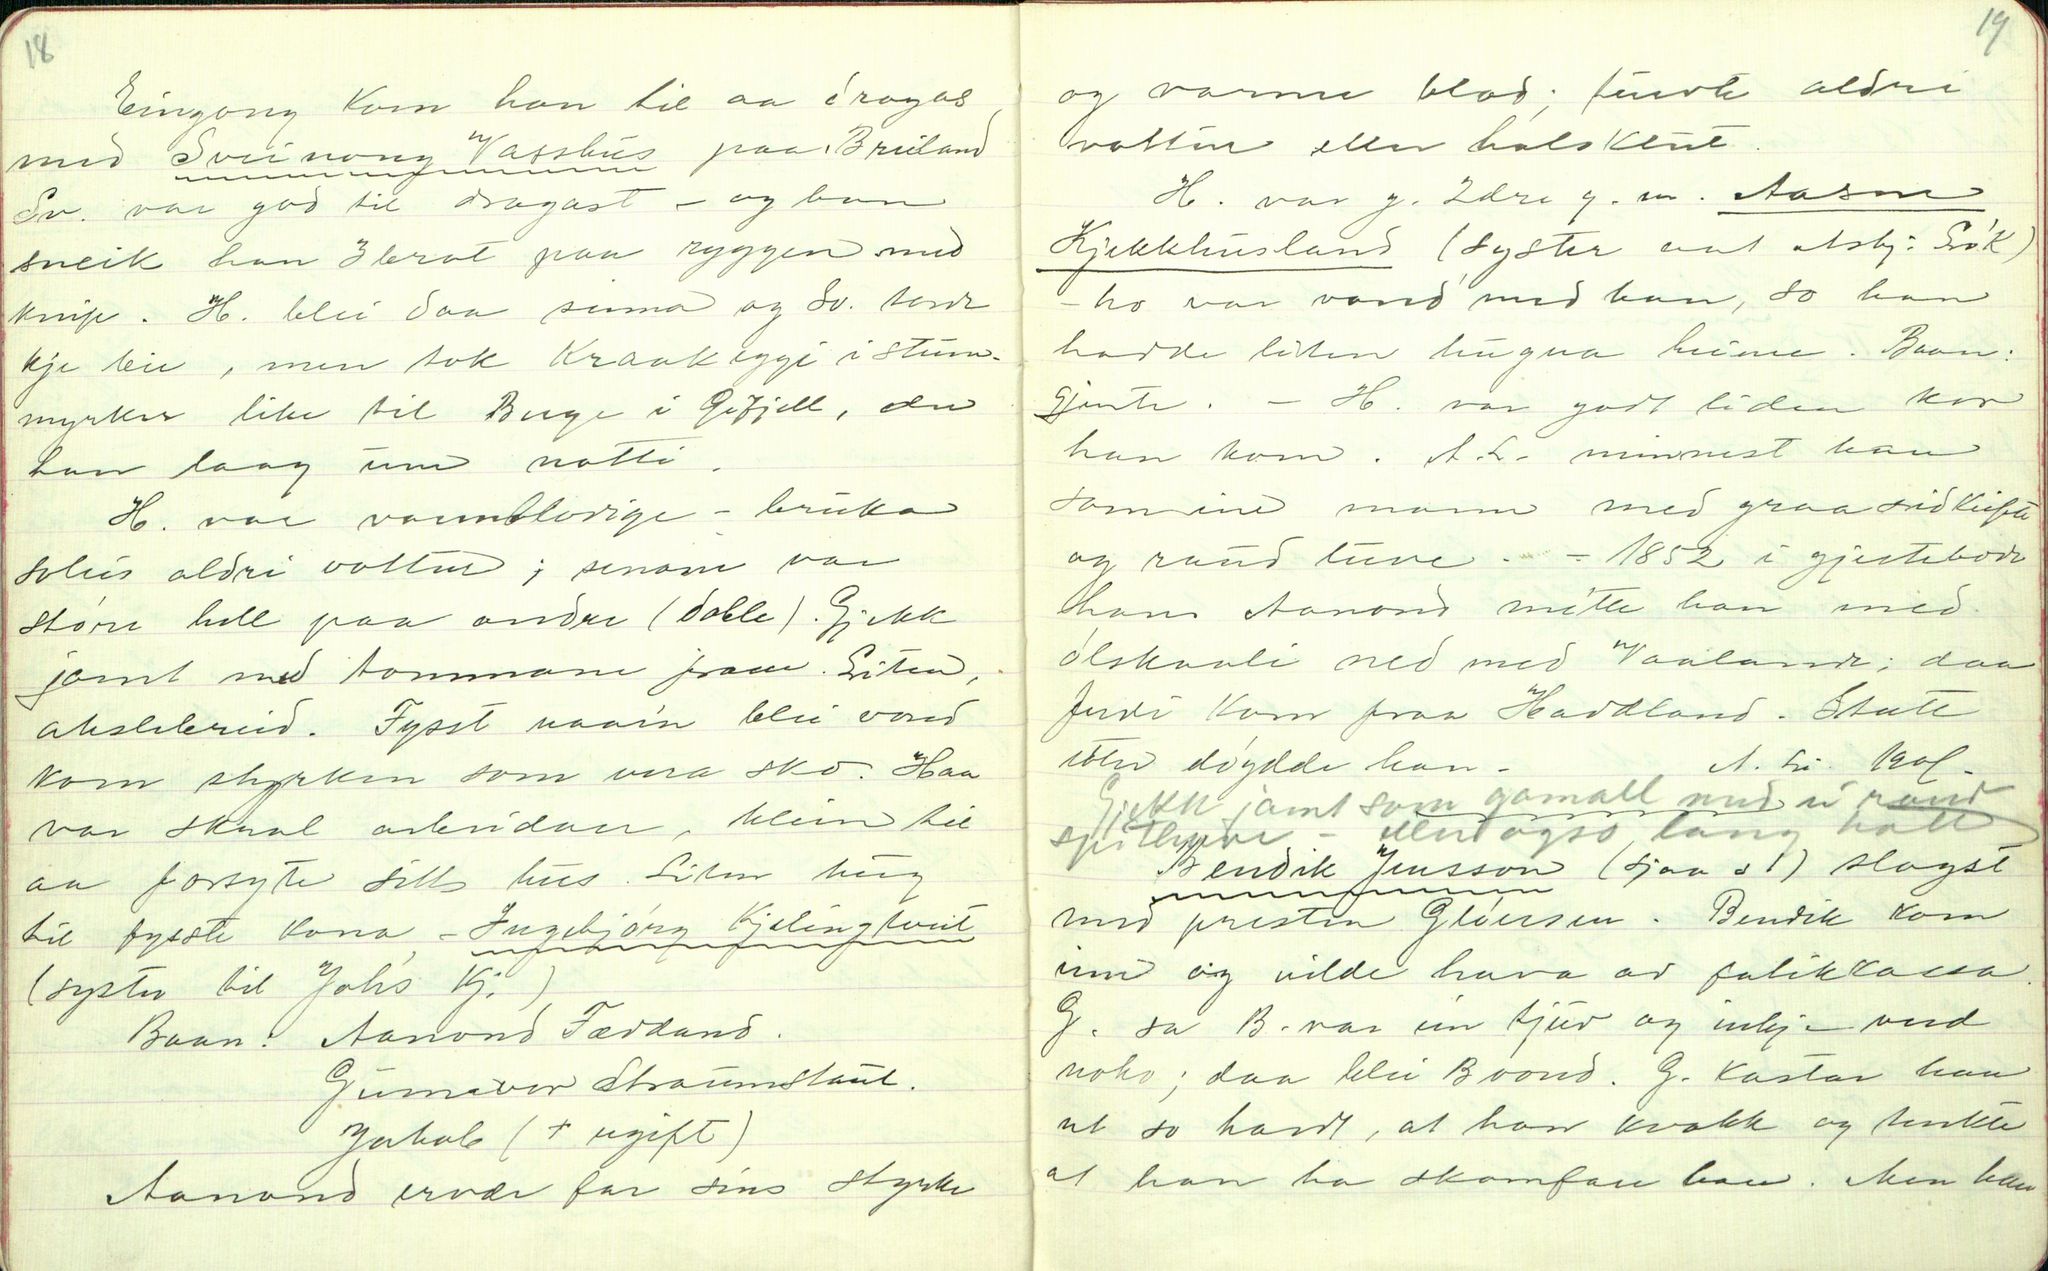 18
Eingong kom han til aa dragas
med Sveinung Vasshus paa Brúland
Sv. var god til dragast – og han
sneik han Hbrot paa ryggen med
knip. H. blei daa sinna og Sv. torde
kje bie, men tok Kraakeggi i stum-
myrker like til Buge i Gifjell, der
han laag um notti.
H. var varmblodige – bruka
soleis aldri vottur; senane var
større hell paa andre (doble). Gjekk
jamt med tommane fram. Liten,
akslebreid. Fysst naain blei vond
kom styrken som vera sko. Han
var skral arbeidar, klein til
aa forsyte sitt hus. Liten hug
til fysste kona – Ingebjørg Kjelingtveit
(syster til Johs Kj.)
Baan: Aanond Fædland.
Gunnvor Straumstaul.
Jakob (+ ugift)
Aanond ervde far sins styrke
19
og varme blod; turvte aldri
vottur eller halsklut.
H. var g. 2dre g. m. Aasne
Kjekkhusland (syster aat Asbj. Løk)
– ho var vond med han, so han
hadde liten hugna heime. Baan:
gjente. – H. var godt liden kor
han kom. A.L. minnest han
som ein mann med graa sidkufte
og raud luve. – 1852 i gjestebode
hans Aanond møtte han med
ølskaali ned med Vaalande; daa
ferdi kom fraa Haddland. Stutt
etter døydde han. – A. Li. 1901.
Gjekk jamt som gamall med ei raud
spitluve – eller ogso lang hatt
Bendik Jensson (sjaa s 1) slogst
med presten Gløersen. Bendik kom
inn og vilde hava av fatikkassa.
G. sa B. var ein tjuv og inkje verd
noko; daa blei B vond. G. kastar han
ut so hardt, at han kvakk og tenkte
at han ha skamfare han. Men han